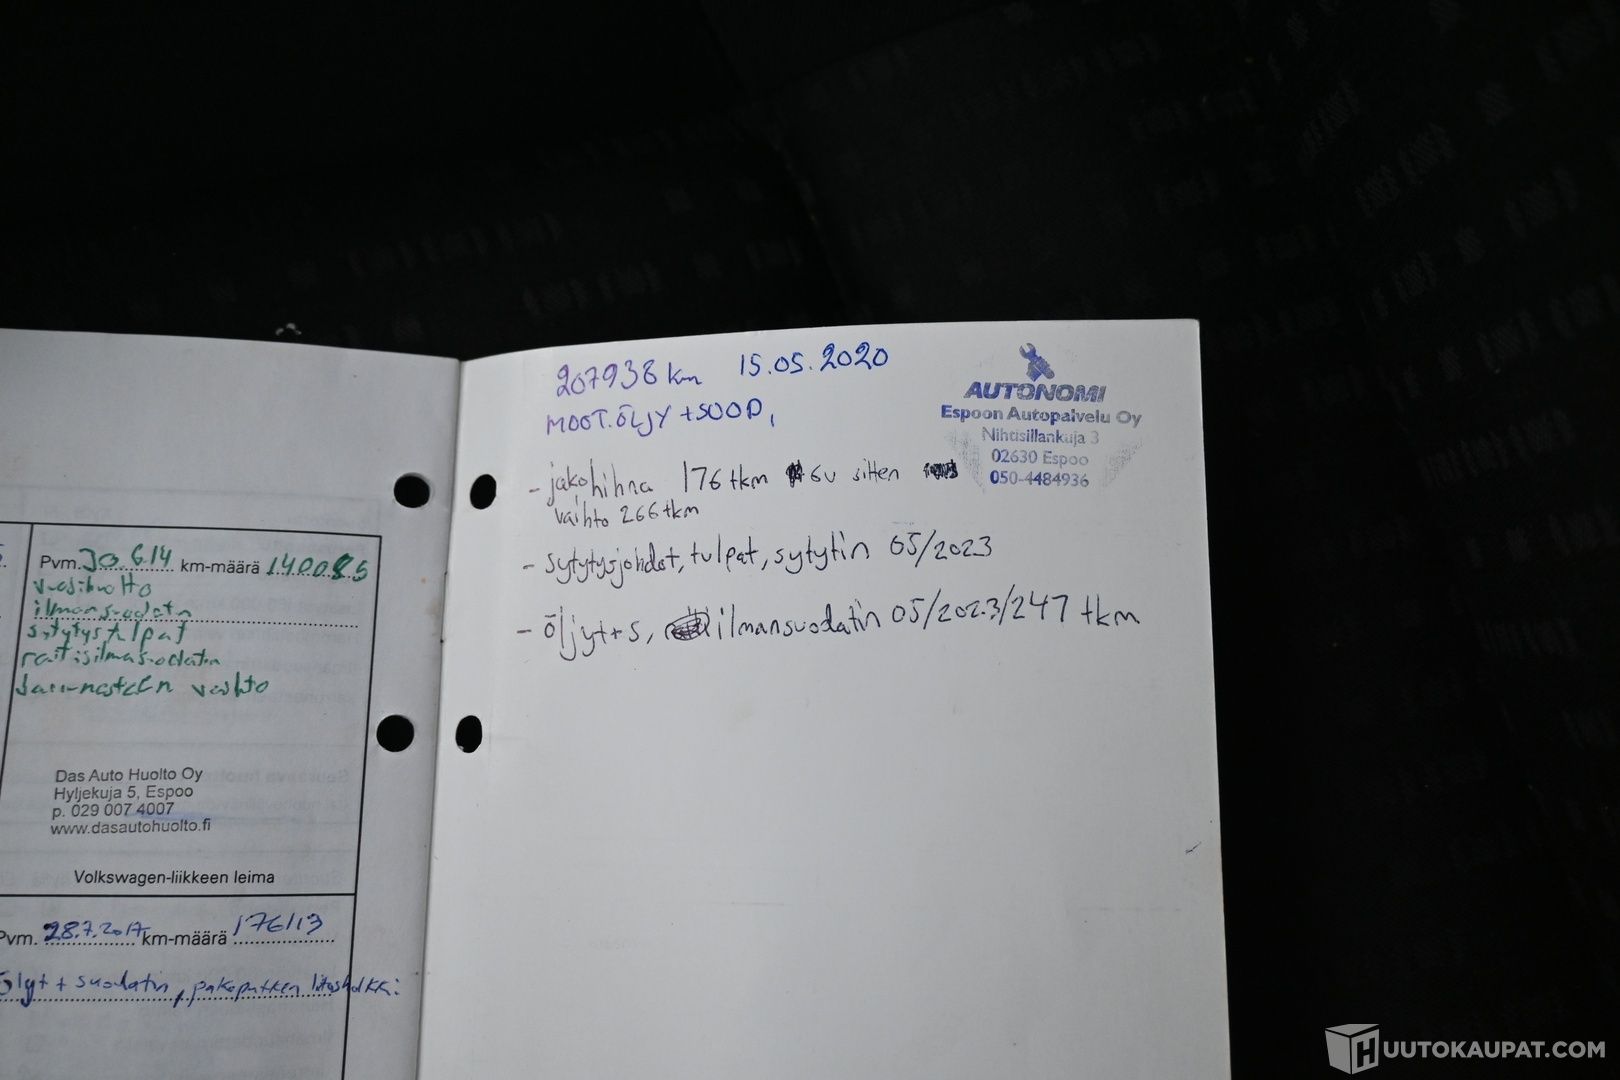 Pvm. 30.6.14 km-määrä 140085
vuosihuolto
ilmansuodatin
sytytystulpat
raitisilmasuodatin
Jarrunesteen vaihto
Das Auto Huolto Oy
Hyljekuja 5, Espoo
p. 029 007 4007
www.dasautohuolto.fi
Volkswagen-liikkeen leima
Pvm. 28.7.2017 km-määrä 176113
öljyt + suodatin, pakoputken
207938 km 15.05.2020
MOOT.ÖLJY +SUOD,
AUTONOMI
Espoon Autopalvelu Oy
Nihtisillankuja 3
02630 Espoo
050-4484936
- jakohihna 176 tkm 6v sitten
vaihto 266 tkm
- sytytysjohdot, tulpat, sytytin 05/2023
- öljyt+s, ilmansuodatin 05/2023/247 tkm
HUUTOKAUPAT.COM